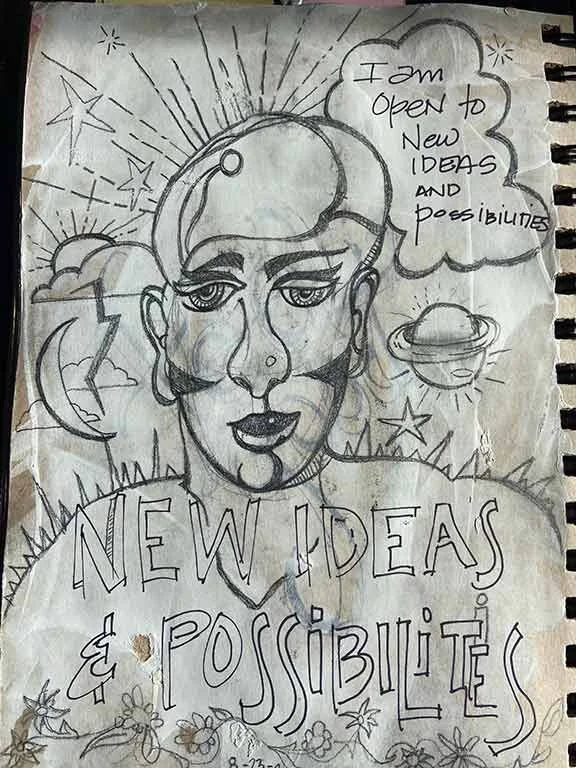 I am
open to
New
IDEAS
AND
possibilities
NEW IDEAS
& POSSIBILITIES